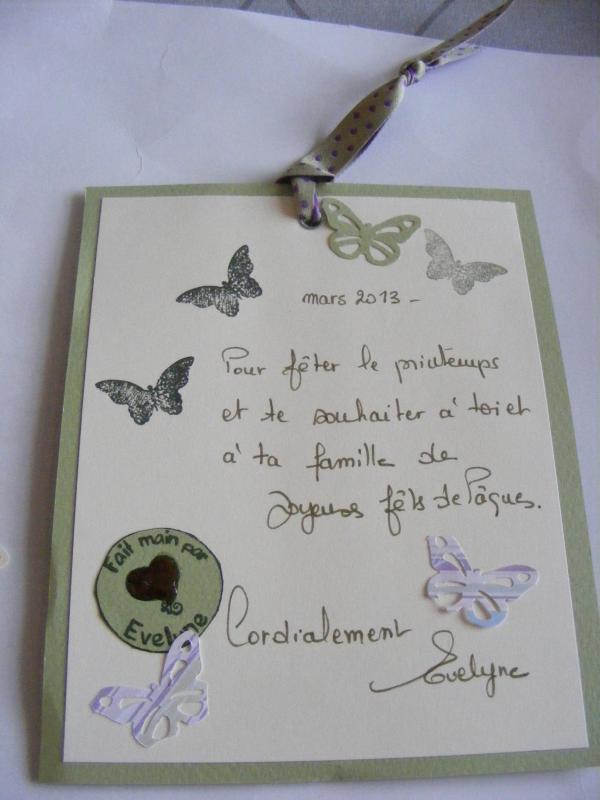 mars 2013 -
Pour fêter le printemps
et te souhaiter à toi et
à ta famille de
Joyeuses fêts de Pâques.
Fait main par
Evelyne
Cordialement
Evelyne